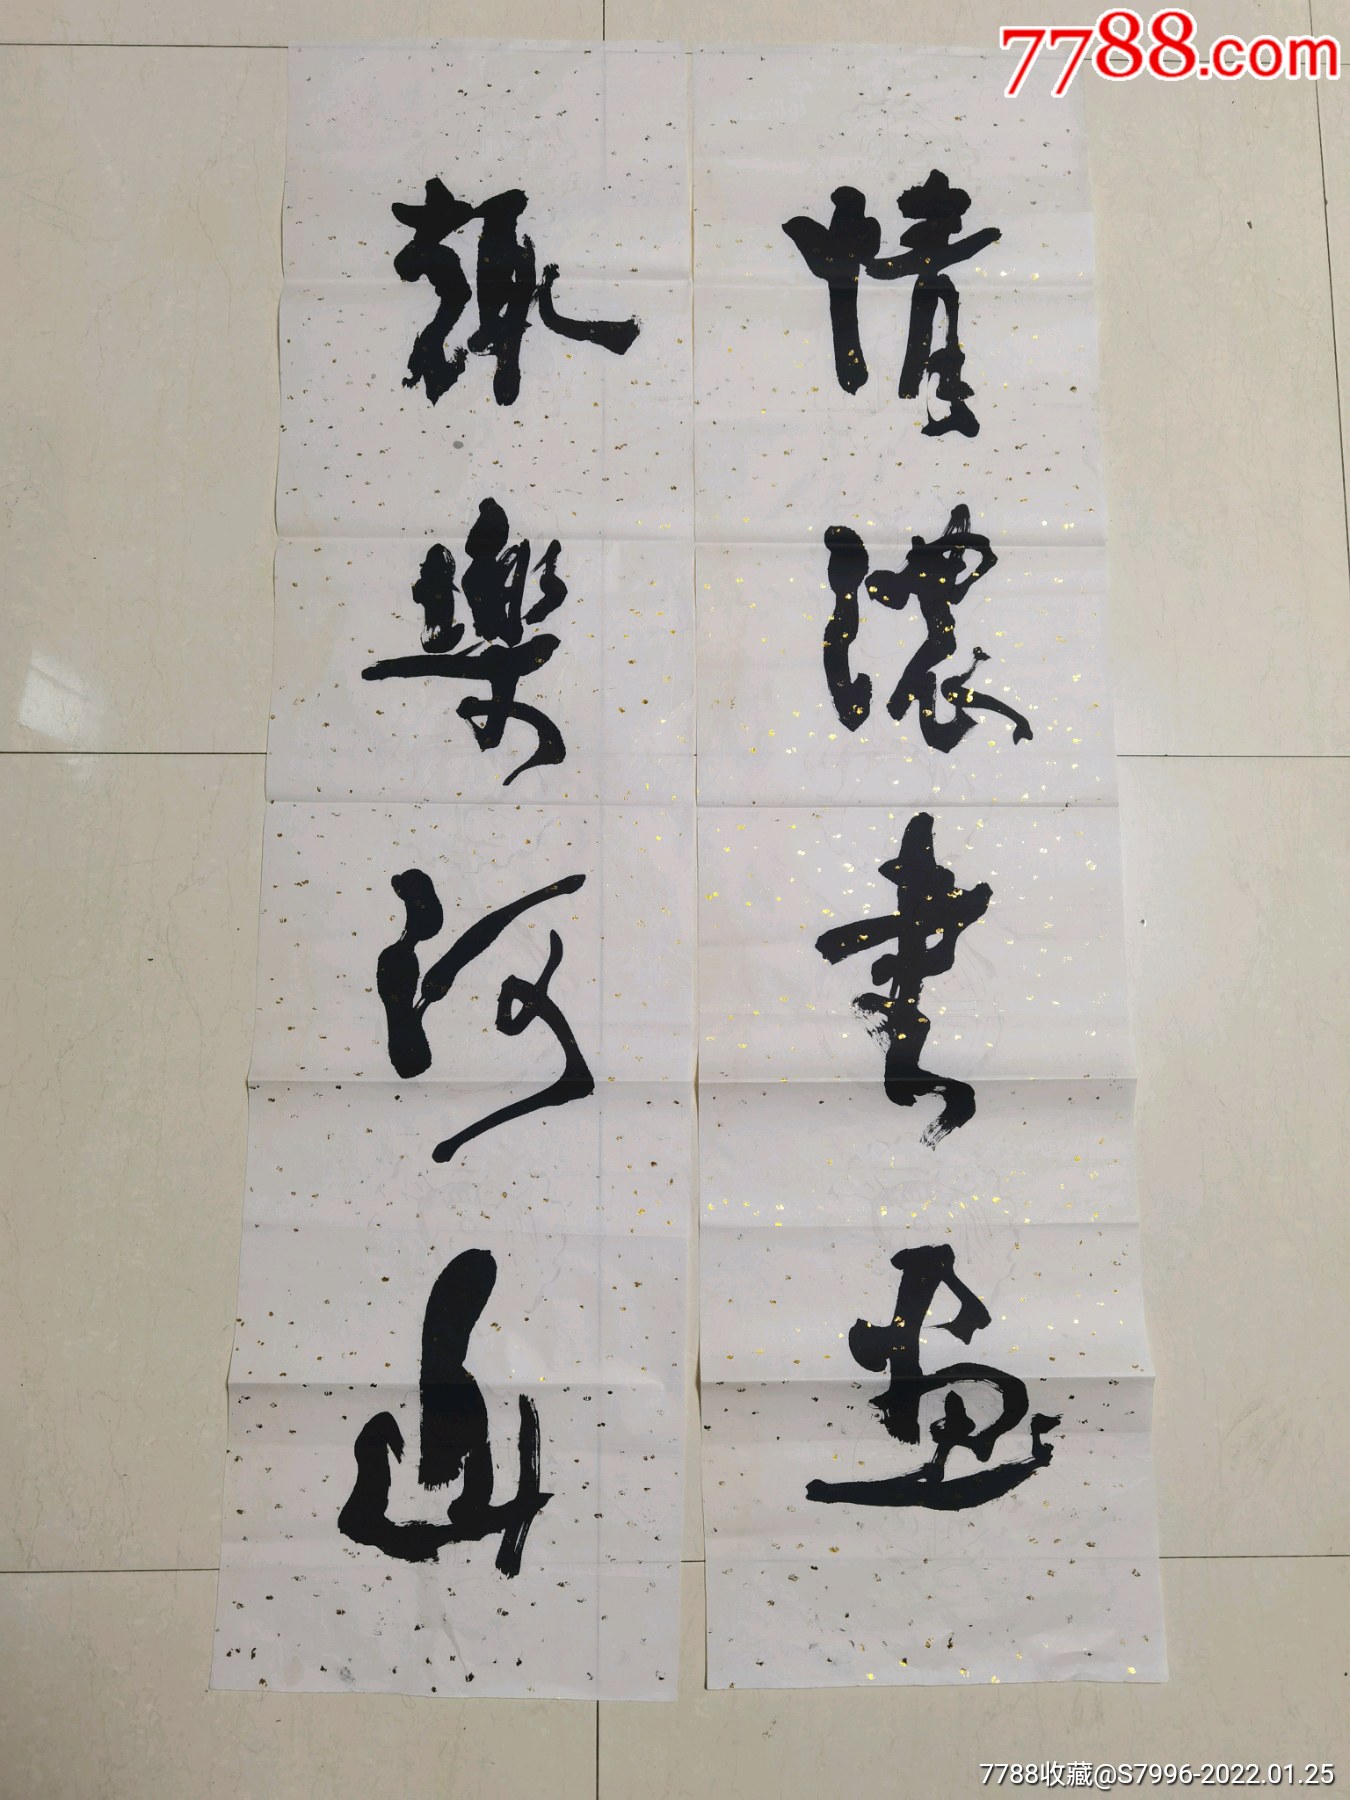 7788.com
情濃書畫
趣樂河山
7788收藏@S7996-2022.01.25